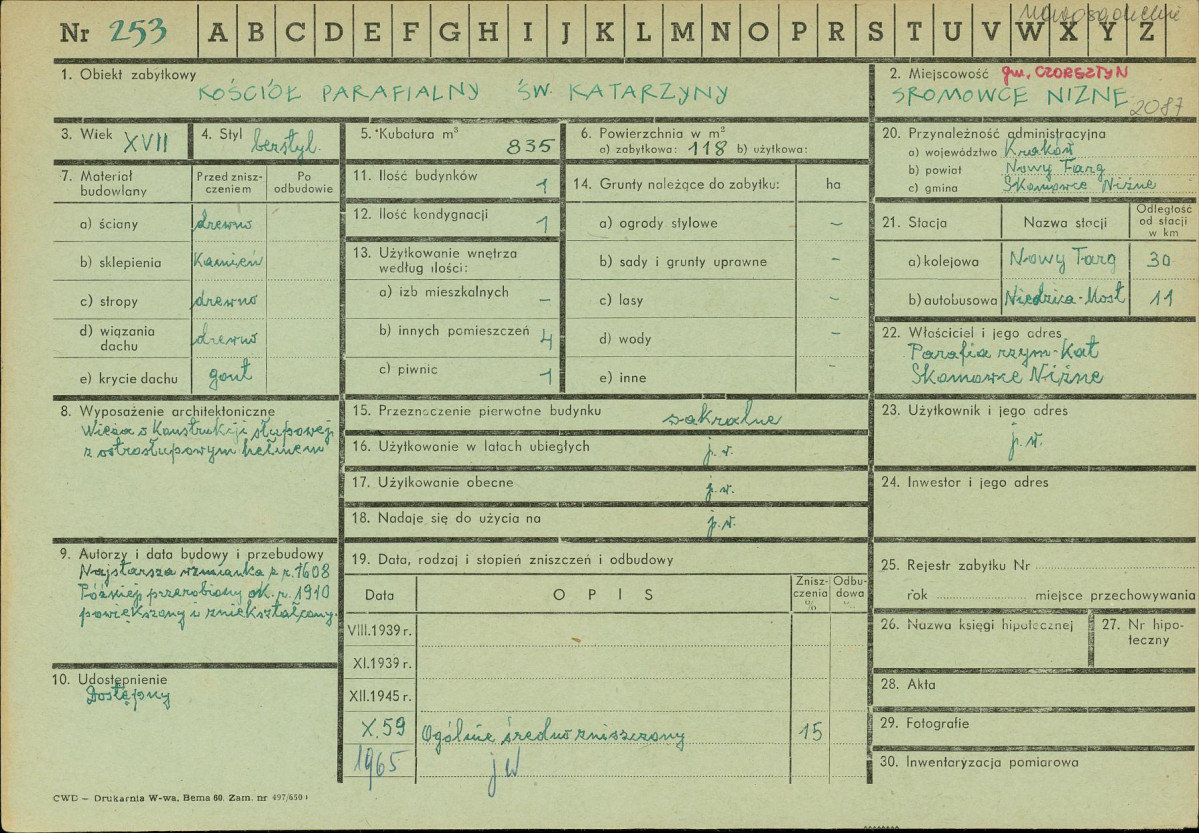 Nr 253 A B C D E F G H I J K L M N O P R S T U V W X Y Z
1. Obiekt zabytkowy
KOŚCIÓŁ PARAFIALNY ŚW. KATARZYNY
2. Miejscowość gm. CZORSZTYN
SROMOWCE NIŻNE 2087
3. Wiek XVII
4. Styl bezstyl.
5. Kubatura m³ 835
6. Powierzchnia w m²
a) zabytkowa: 118 b) użytkowa:
7. Materiał budowlany
Przed znisz-
czeniem
Po
odbudowie
a) ściany drewno
b) sklepienia Kamień
c) stropy drewno
d) wiązania
dachu drewno
e) krycie dachu gont
8. Wyposażenie architektoniczne
Wieża o Konstrukcji słupowej
z ostrosłupowym hełmem
9. Autorzy i data budowy i przebudowy
Najstarsza wzmianka z r. 1608
Później przerobiony ok. r. 1910
powiększony i zniekształcony.
10. Udostępnienie
Dostępny
11. Ilość budynków 1
12. Ilość kondygnacji 1
13. Użytkowanie wnętrza
według ilości:
a) izb mieszkalnych –
b) innych pomieszczeń 4
c) piwnic 1
14. Grunty należące do zabytku: ha
a) ogrody stylowe –
b) sady i grunty uprawne –
c) lasy –
d) wody –
e) inne –
15. Przeznaczenie pierwotne budynku sakralne
16. Użytkowanie w latach ubiegłych j.w.
17. Użytkowanie obecne j.w.
18. Nadaje się do użycia na j.w.
19. Data, rodzaj i stopień zniszczeń i odbudowy
Data
OPIS
Znisz-
czenia
%
Odbu-
dowa
%
VIII.1939 r.
XI.1939 r.
XII.1945 r.
X.59 Ogólnie średnio zniszczony 15
1965 jw
20. Przynależność administracyjna
a) województwo Kraków
b) powiat Nowy Targ
c) gmina Skomowce Niżne
21. Stacja
Nazwa stacji
Odległość
od stacji
w km
a) kolejowa Nowy Targ 30
b) autobusowa Niedzica-Most 11
22. Właściciel i jego adres
Parafia rzym-Kat
Skomowce Niżne
23. Użytkownik i jego adres
j.w.
24. Inwestor i jego adres
25. Rejestr zabytku Nr
rok miejsce przechowywania
26. Nazwa księgi hipotecznej
27. Nr hipo-
teczny
28. Akta
29. Fotografie
30. Inwentaryzacja pomiarowa
CWD – Drukarnia W-wa, Bema 60. Zam. nr 497/650